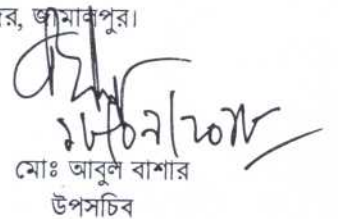 র, জামালপুর।
মোঃ আবুল বাশার
উপসচিব